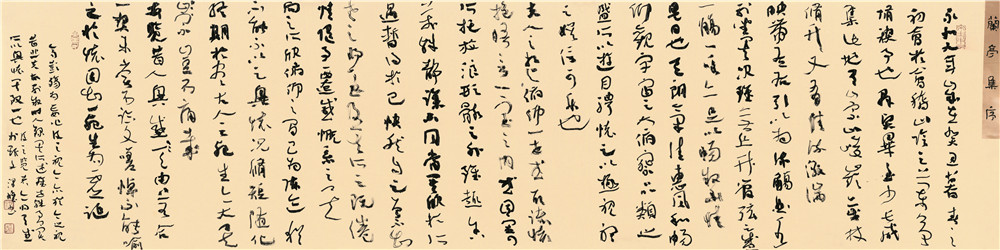 蘭亭集序
永和九年歲在癸丑暮春之
初會於會稽山陰之蘭亭
脩禊事也群賢畢至少長咸
集此地有崇山峻嶺茂林
脩竹又有清流激湍
映帶左右引以為流觴曲水
列坐其次雖無絲竹管弦之盛
一觴一詠亦足以暢敘幽情
是日也天朗氣清惠風和暢
仰觀宇宙之大俯察品類之
盛所以遊目騁懷足以極視聽
之娛信可樂也
夫人之相與俯仰一世或取諸懷
抱晤言一室之內或因寄所
託放浪形骸之外雖趣舍
萬殊靜躁不同當其欣於所
遇暫得於己快然自足不知
老之將至及其所之既倦
情隨事遷感慨係之矣
向之所欣俯仰之間已為陳跡猶
不能不以之興懷況脩短隨化
終期於盡古人云死生亦大矣
豈不痛哉
每覽昔人興感之由若合
一契未嘗不臨文嗟悼不能喻
之於懷固知一死生為虛誕
齊彭殤為妄作後之視今亦猶今之視
昔悲夫故列敘時人錄其所述雖世殊事異
所以興懷其致一也後之覽者亦將有感
於斯文